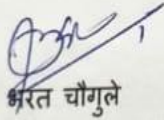 भरत चौगुले